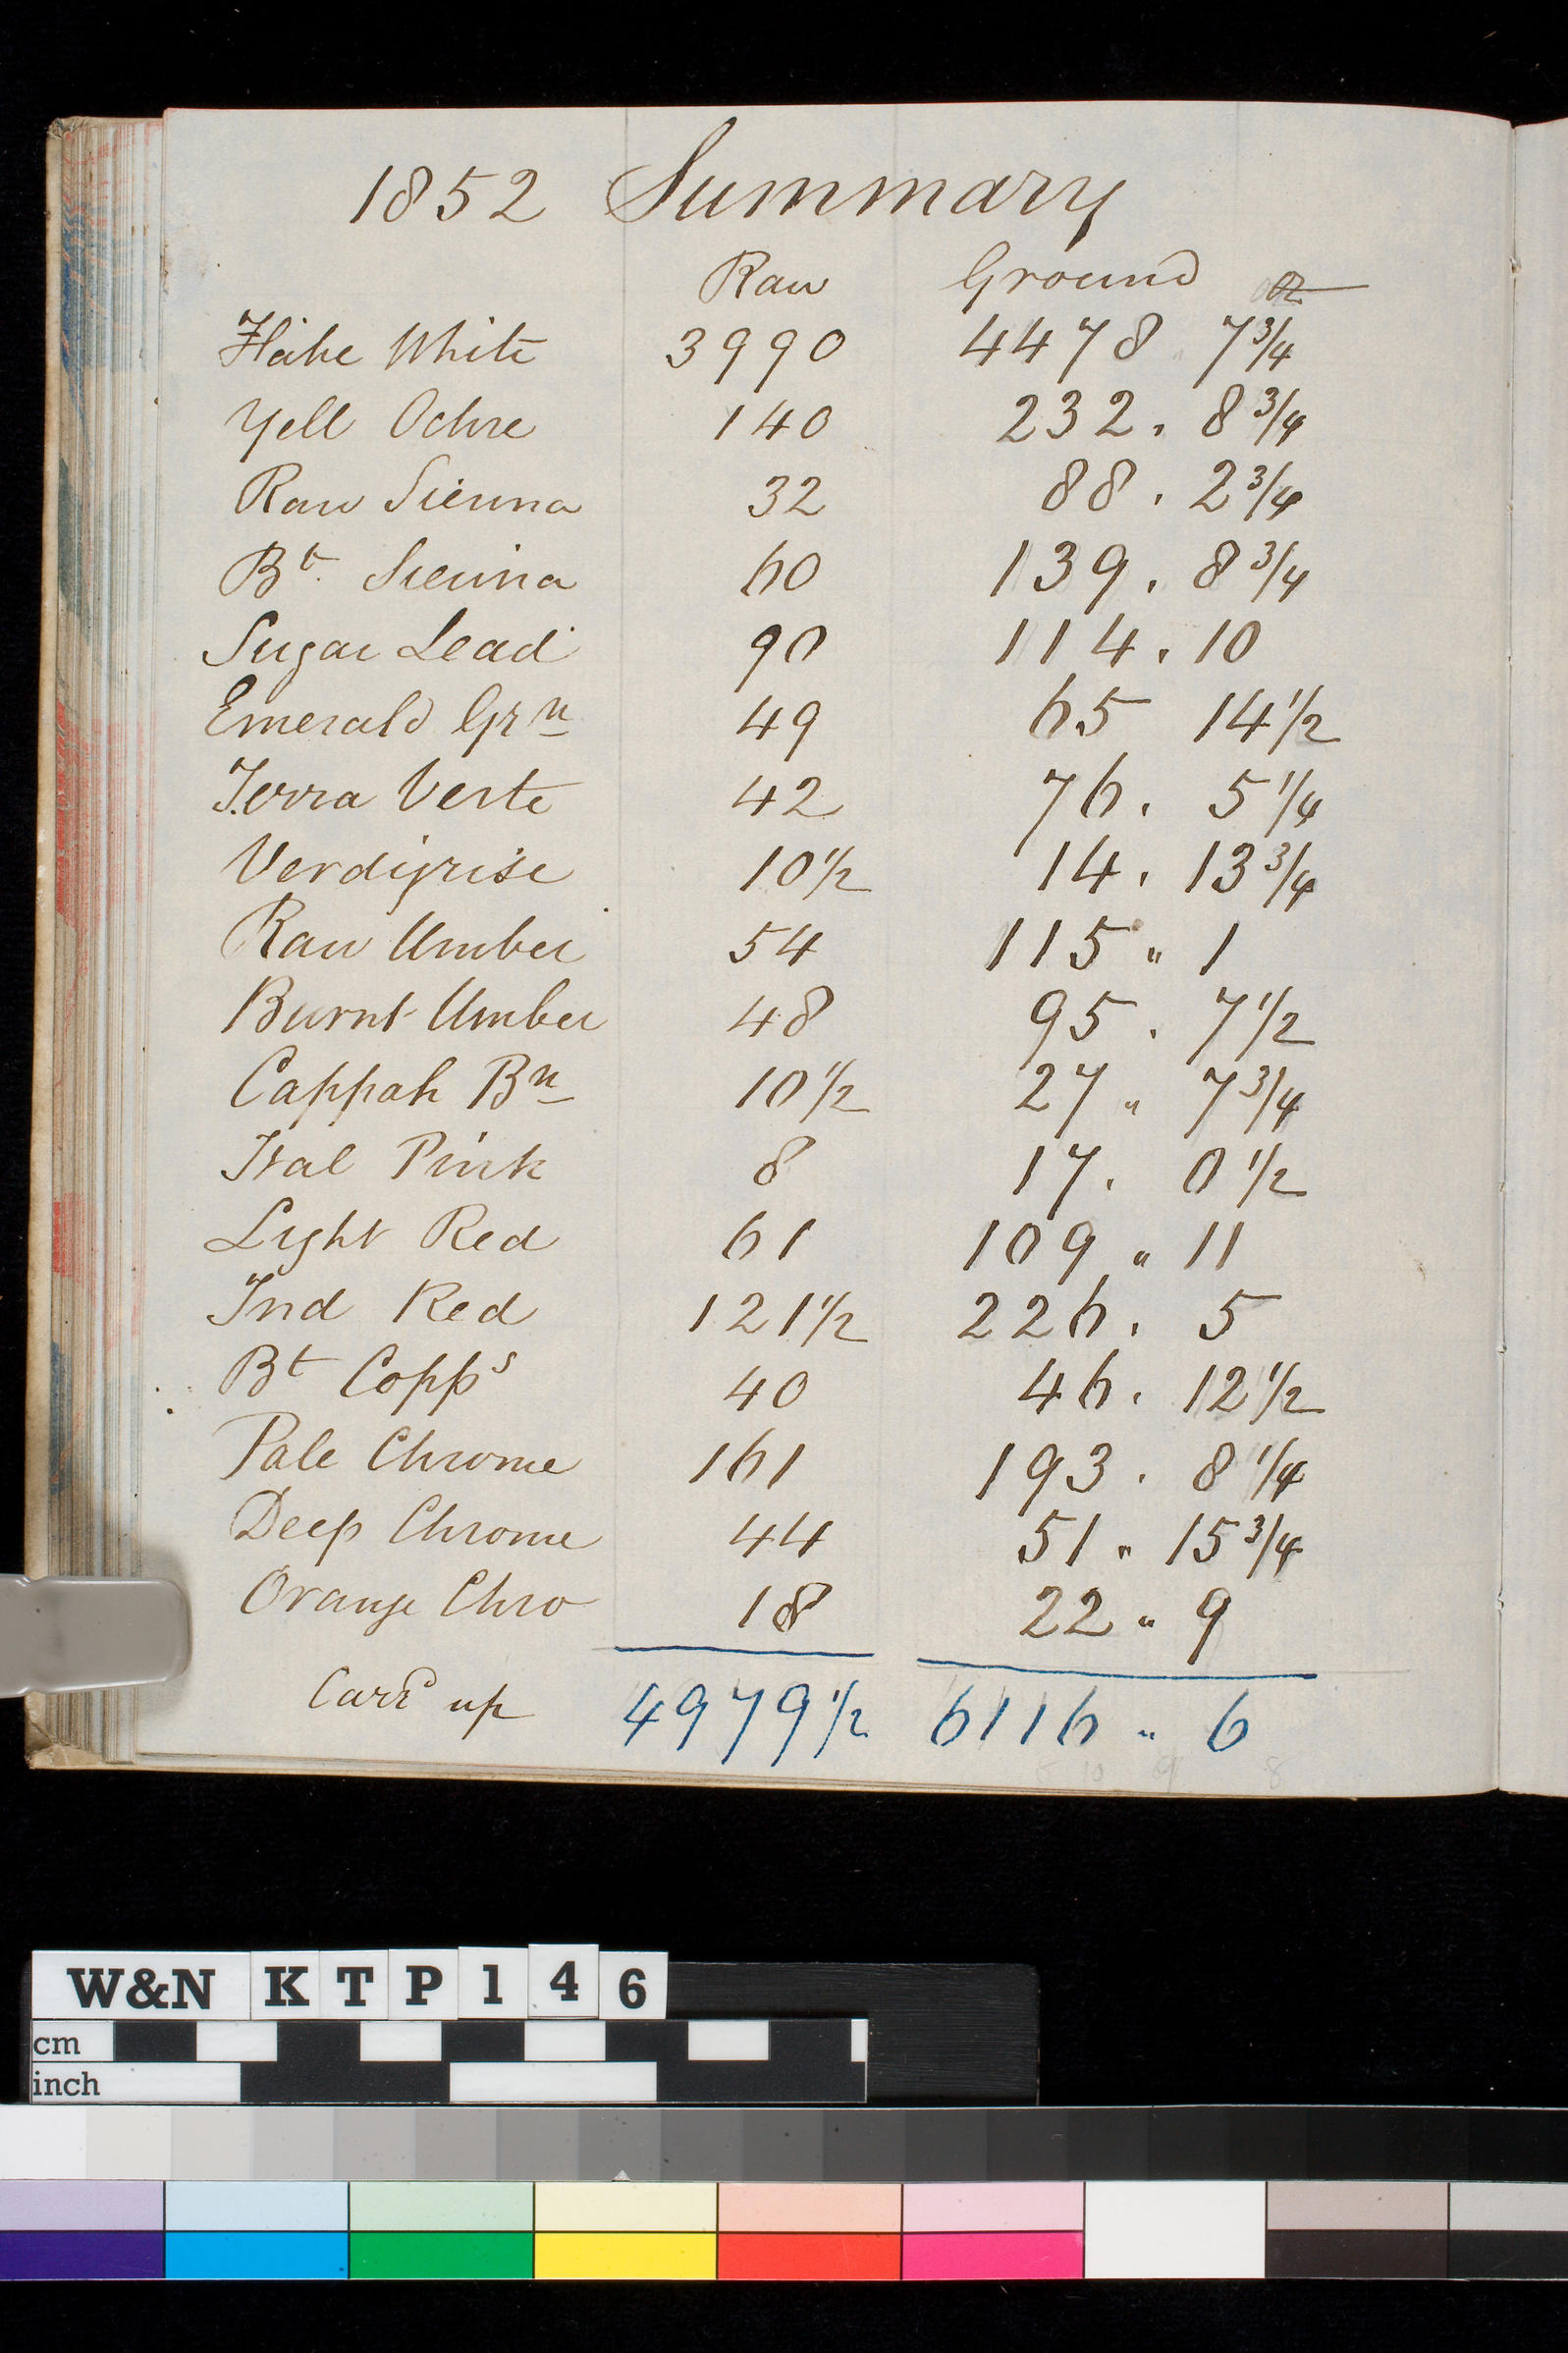 1852 Summary
Raw Ground oz
Flake White 3990 4478 " 7 3/4
Yell Ochre 140 232 . 8 3/4
Raw Sienna 32 88 . 2 3/4
Bt. Sienna 60 139 . 8 3/4
Sugar Lead 90 114 . 10
Emerald Grn 49 65 14 1/2
Terra Verte 42 76 . 5 1/4
Verdigrise 10 1/2 14 . 13 3/4
Raw Umber 54 115 " 1
Burnt Umber 48 95 . 7 1/2
Cappah Bn 10 1/2 27 " 7 3/4
Ital Pink 8 17 . 0 1/2
Light Red 61 109 " 11
Ind Red 121 1/2 226 . 5
Bt Copps 40 46 . 12 1/2
Pale Chrome 161 193 . 8 1/4
Deep Chrome 44 51 " 15 3/4
Orange Chro 18 22 " 9
Carrd up 4979 1/2 6116 " 6
W&N KTP146
cm
inch